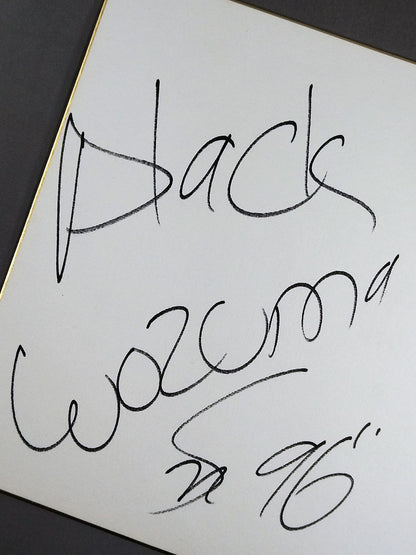 Black
Wazuma
96"